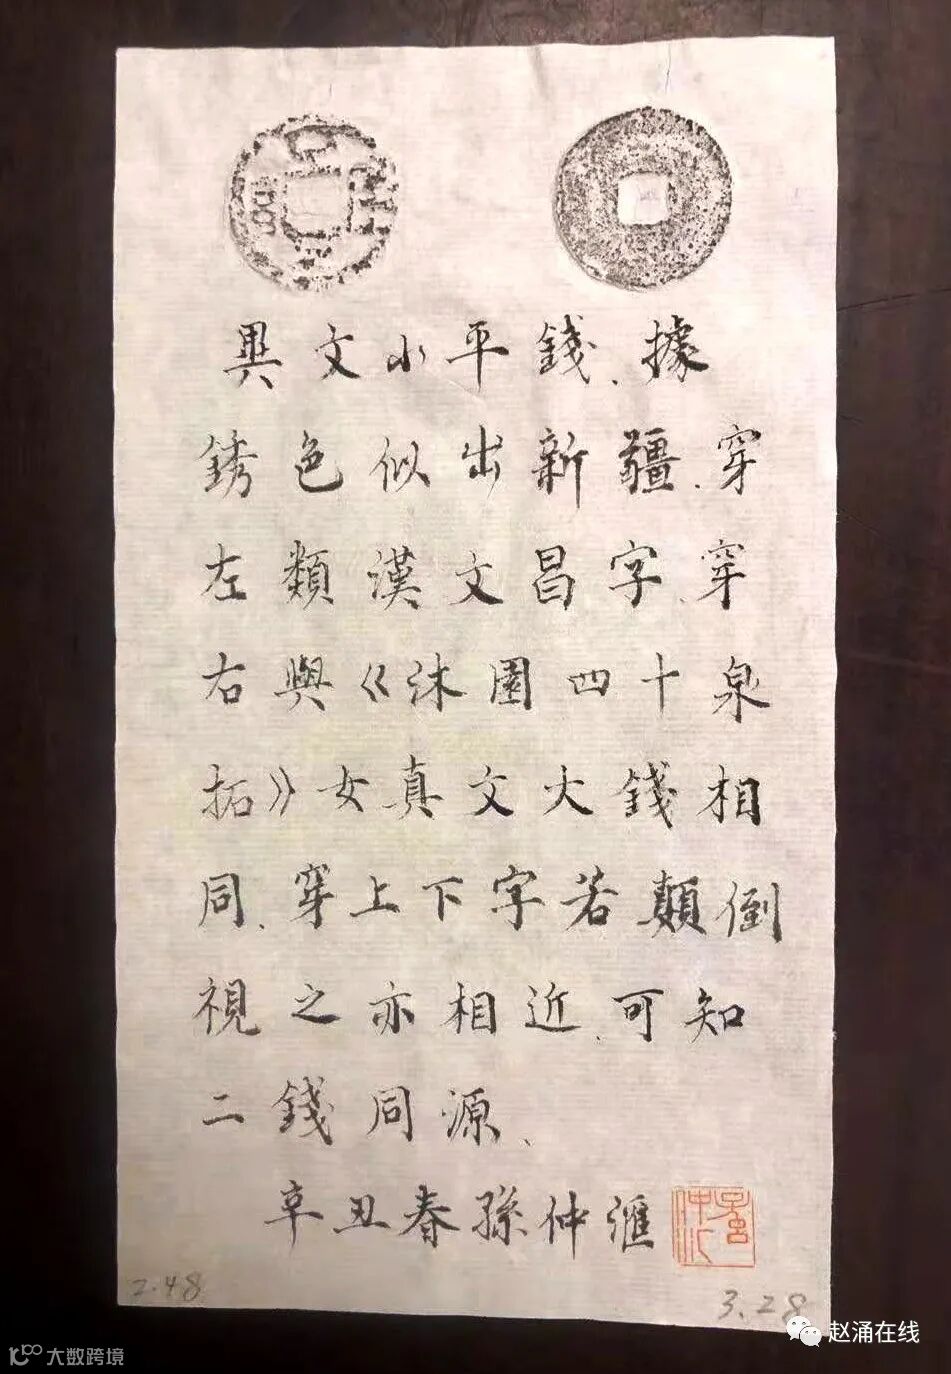 異文小平錢、據
銹色似出新疆、穿
左類漢文昌字、穿
右與《沐園四十泉
拓》女真文大錢相
同、穿上下字若顛倒
視之亦相近、可知
二錢同源、
辛丑春孫仲滙
2.48
3.28
赵涌在线
大数跨境